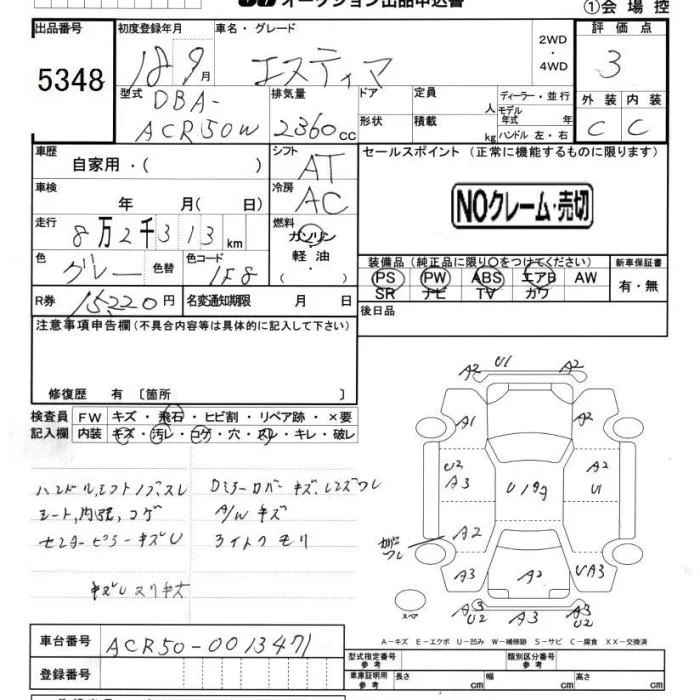 オークション出品申込書
①会場控
出品番号 初度登録年月 車名・グレード 2WD・4WD 評価点
5348 18 9月 エスティマ 3
型式 排気量 ドア 定員 人 ディーラー・並行 外装 内装
DBA-
ACR50W 2360cc 形状 積載 kg モデル年式 年 ハンドル 左・右 C C
車歴 自家用・( ) シフト AT セールスポイント (正常に機能するものに限ります)
車検 年 月(日) 冷房 AC NOクレーム・売切
走行 8万2千313km 燃料 ガソリン・軽油・( )
色 グレー 色替 色コード 1F8
装備品(純正品に限り○をつけてください) 新車保証書
PS PW ABS エアB AW 有・無
SR ナビ TV カワ
R券 15220円 名変通知期限 月 日 後日品
注意事項申告欄(不具合内容等は具体的に記入して下さい)
修復歴 有〔箇所 〕
検査員 FW キズ・飛石・ヒビ割・リペア跡・×要
記入欄 内装 キズ・汚レ・コゲ・穴・スレ・キレ・破レ
ハンドル,シフトノブ,スレ Dミラーカバーキズ,レンズワレ
シート,内張,コゲ A/Wキズ
センターピラーキズU ライトクモリ
キズUスリキズ
A2 U1 A2
A1 A2
U2 A2
A3 U199 U1
A2
ワレ
A3 A2 UA3
スペア A3 U2 A3 A3 U2
A-キズ E-エクボ U-凹み W-補修跡 S-サビ C-腐食 XX-交換済
車台番号 ACR50-0013471
型式指定番号 参考 類別区分番号 参考
登録番号 車庫証明用 参考 長さ cm 幅 cm 高さ cm